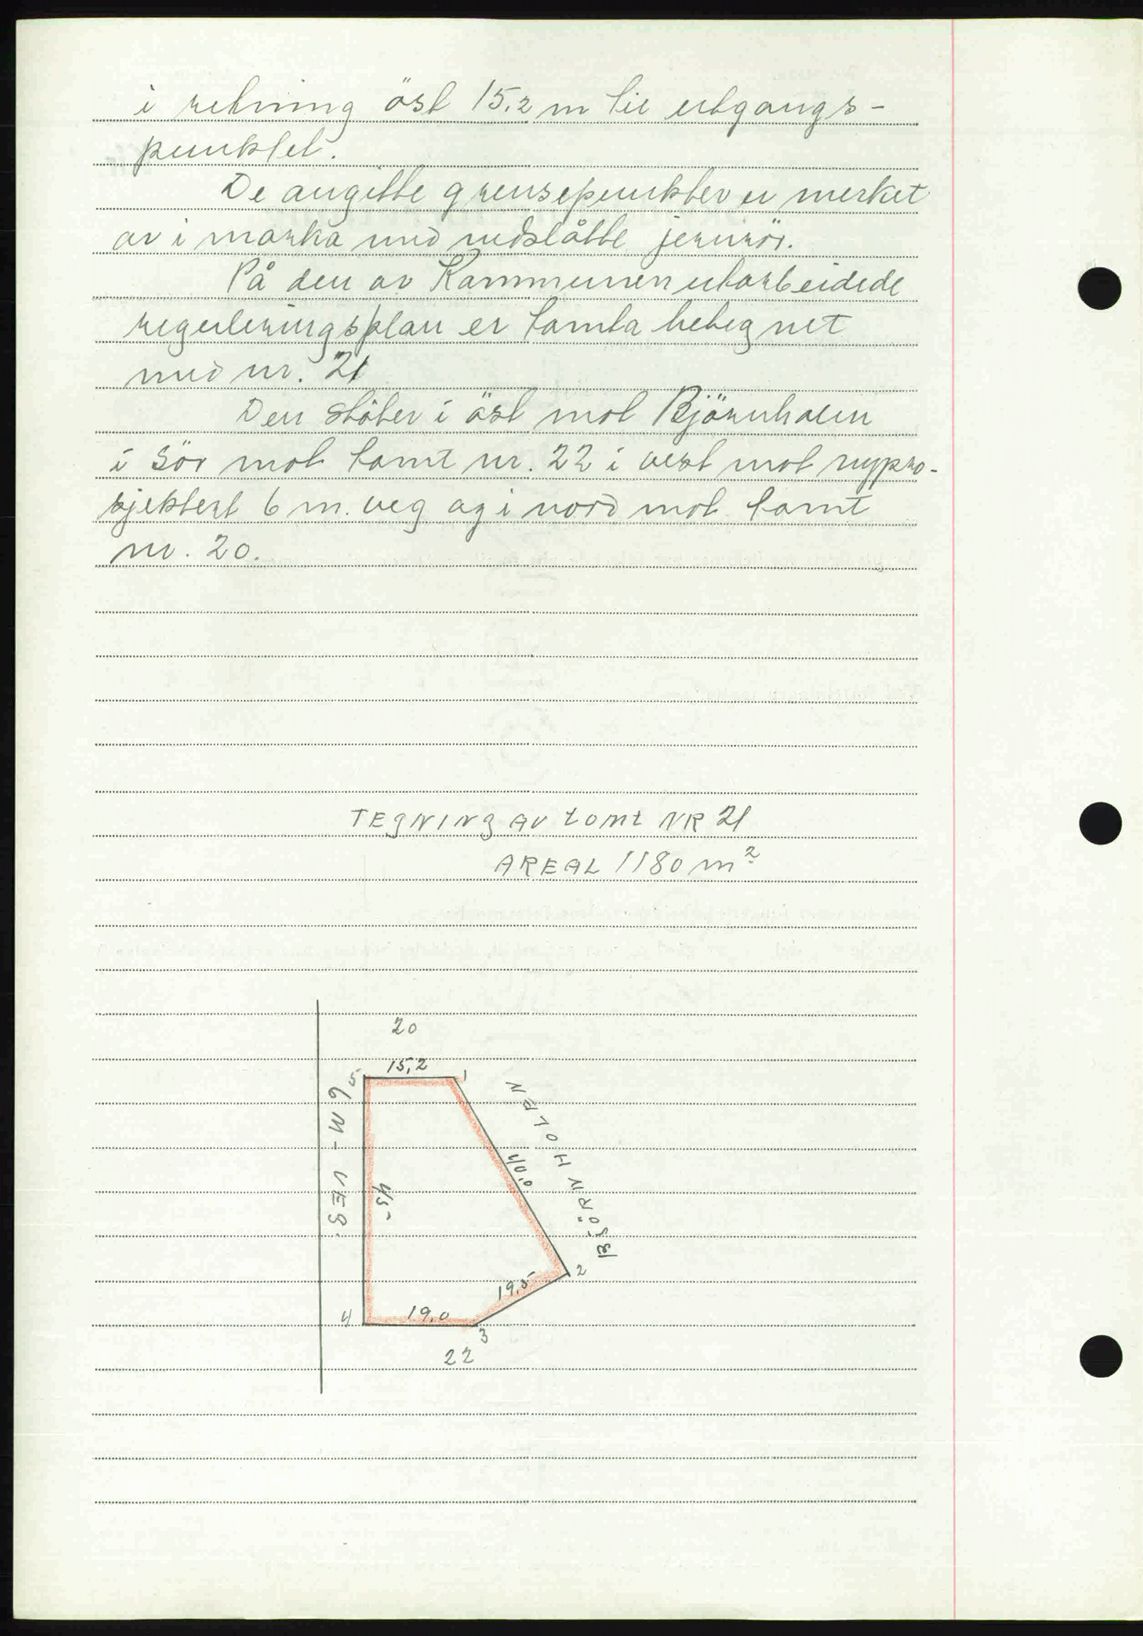 i retning öst 15,2 m til utgangs-
punktet.
De angitte grensepunkter er merket
av i marka med nedslåtte jernrör.
På den av Kommunen utarbeidede
reguleringsplan er tomta betegnet
med nr. 21
Den stöter i öst mot Björnholen
i Sör mot tomt nr. 22 i vest mot nypro-
sjektert 6 m. veg og i nord mot tomt
nr. 20.
TEGNING AV tomt NR 21
AREAL 1180 m²
20
15,2
5
1
6 M - VEG.
BJÖRNHOLEN
40,0
45-
2
19,5
19,0
4
3
22